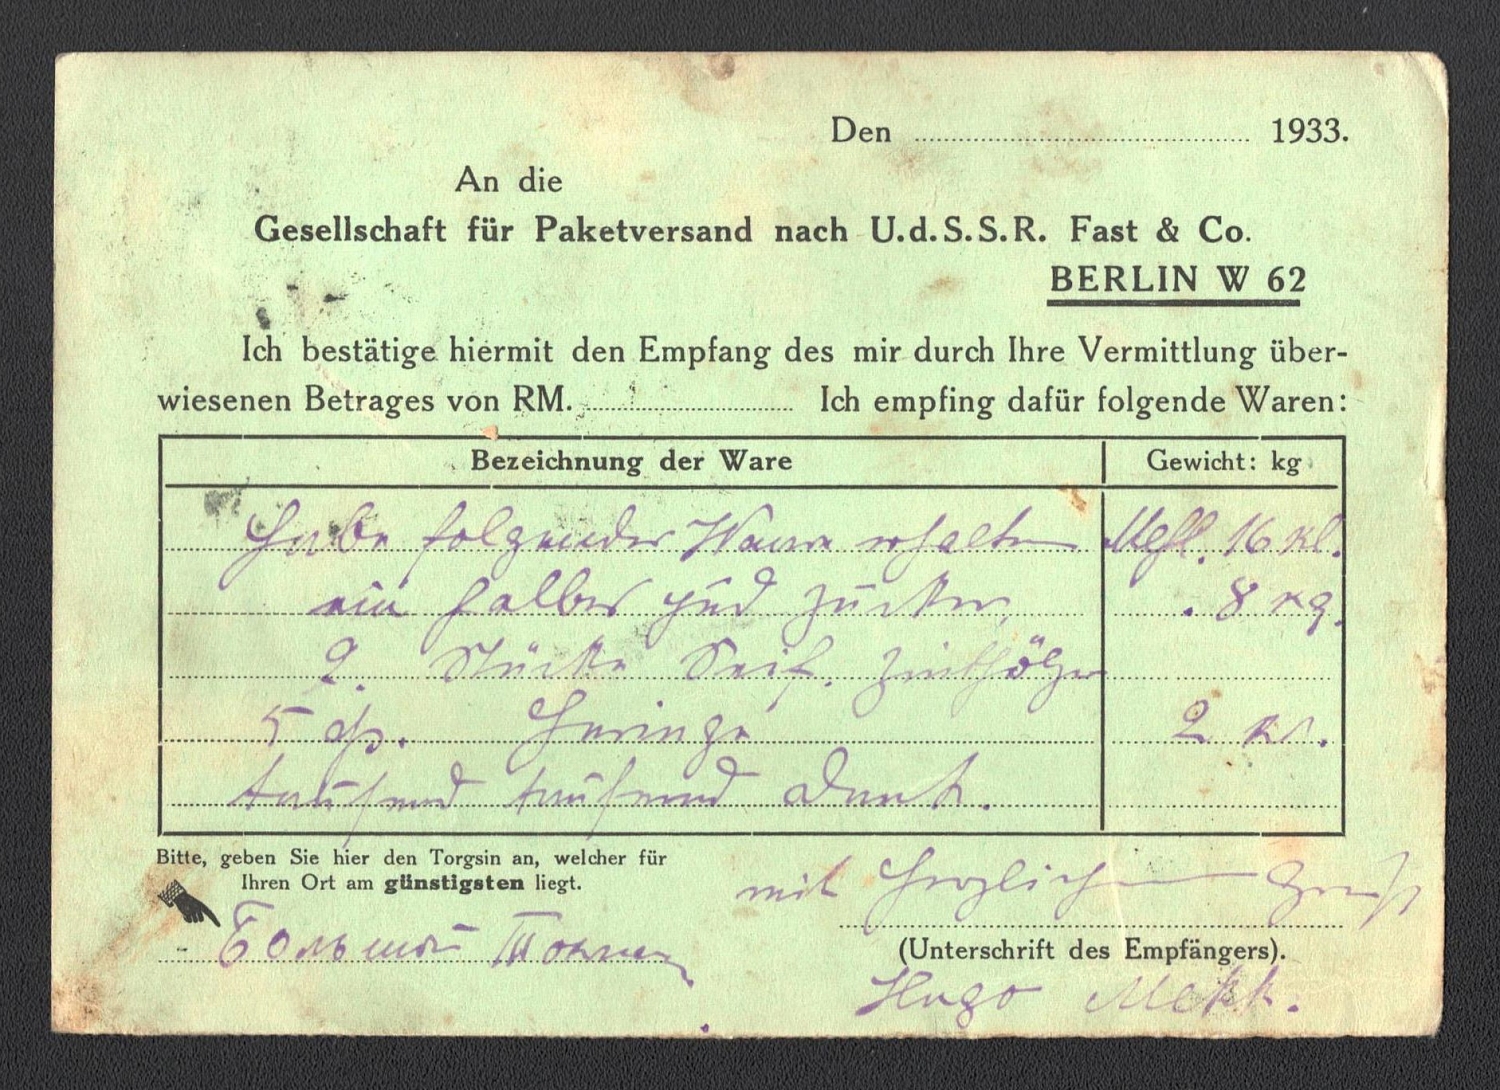 Den 1933.
An die
Gesellschaft für Paketversand nach U.d.S.S.R. Fast & Co.
BERLIN W 62
Ich bestätige hiermit den Empfang des mir durch Ihre Vermittlung über-
wiesenen Betrages von RM. Ich empfing dafür folgende Waren:
Bezeichnung der Ware Gewicht: kg
Habe folgender Waare erhalten Mehl. 16 kl.
ein halbes pud Zucker . 8 kg.
2. Stücke Seif. Zinthölzer
5 Heringe 2
tausend tausend Dank.
Bitte, geben Sie hier den Torgsin an, welcher für
Ihren Ort am günstigsten liegt.
mit Herzlichen Gruß
Большой Токмак
(Unterschrift des Empfängers).
Hugo